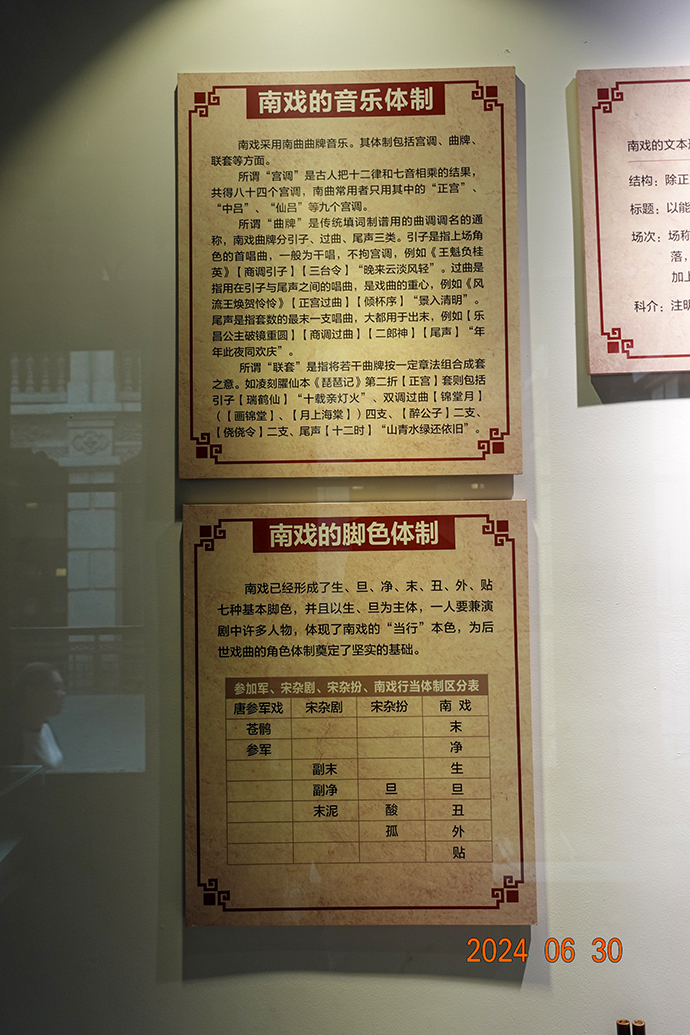 南戏的音乐体制
南戏采用南曲曲牌音乐。其体制包括宫调、曲牌、
联套等方面。
所谓“宫调”是古人把十二律和七音相乘的结果，
共得八十四个宫调，南曲常用者只用其中的“正宫”、
“中吕”、“仙吕”等九个宫调。
所谓“曲牌”是传统填词制谱用的曲调调名的通
称，南戏曲牌分引子、过曲、尾声三类。引子是指上场角
色的首唱曲，一般为干唱，不拘宫调，例如《王魁负桂
英》【商调引子】【三台令】“晚来云淡风轻”。过曲是
指用在引子与尾声之间的唱曲，是戏曲的重心，例如《风
流王焕贺怜怜》【正宫过曲】【倾杯序】“景入清明”。
尾声是指套数的最末一支唱曲，大都用于出末，例如【乐
昌公主破镜重圆】【商调过曲】【二郎神】【尾声】“年
年此夜同欢庆”。
所谓“联套”是指将若干曲牌按一定章法组合成套
之意。如凌刻臞仙本《琵琶记》第二折【正宫】套则包括
引子【瑞鹤仙】“十载亲灯火”、双调过曲【锦堂月】
（【画锦堂】、【月上海棠】）四支、【醉公子】二支、
【侥侥令】二支、尾声【十二时】“山青水绿还依旧”。
南戏的脚色体制
南戏已经形成了生、旦、净、末、丑、外、贴
七种基本脚色，并且以生、旦为主体，一人要兼演
剧中许多人物，体现了南戏的“当行”本色，为后
世戏曲的角色体制奠定了坚实的基础。
参加军、宋杂剧、宋杂扮、南戏行当体制区分表
唐参军戏 宋杂剧 宋杂扮 南 戏
苍鹘 末
参军 净
副末 生
副净 旦 旦
末泥 酸 丑
孤 外
贴
南戏的文本
结构：除正
标题：以能
场次：场称
落，
加上
科介：注明
2024 06 30